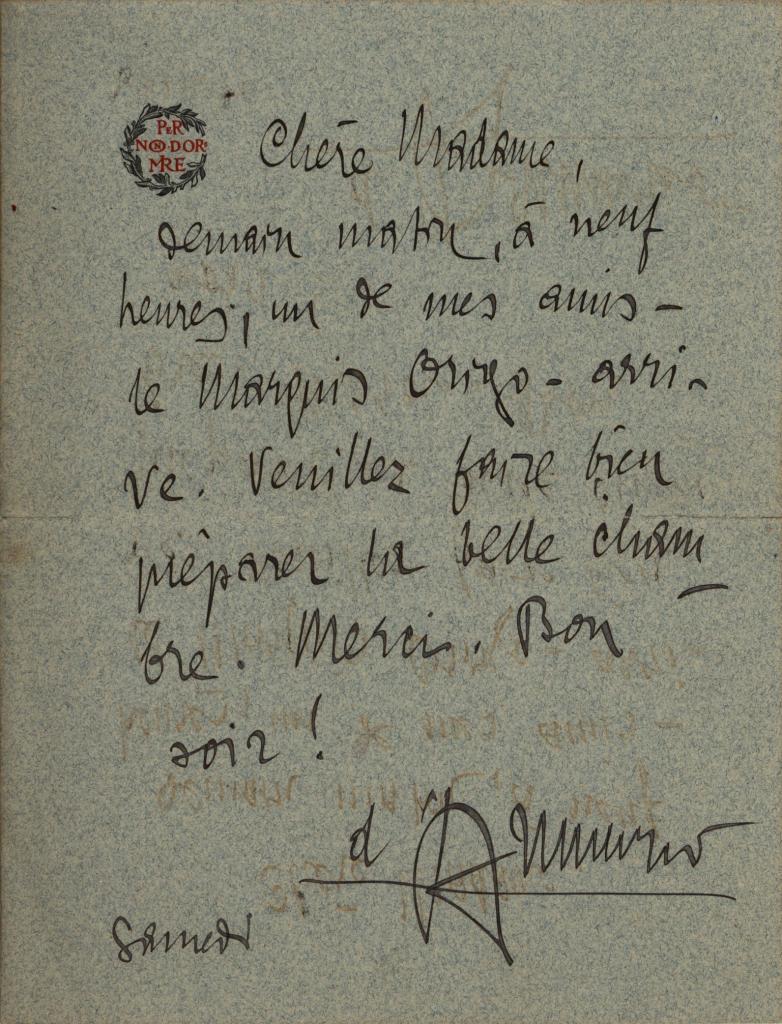 PER
NON DOR
MIRE
Chère Madame,
demain matin, à neuf
heures, un de mes amis -
le Marquis Origo - arri-
ve. Veuillez faire bien
préparer la belle cham
bre. Merci. Bon
soir !
d'Annunzio
Samedi